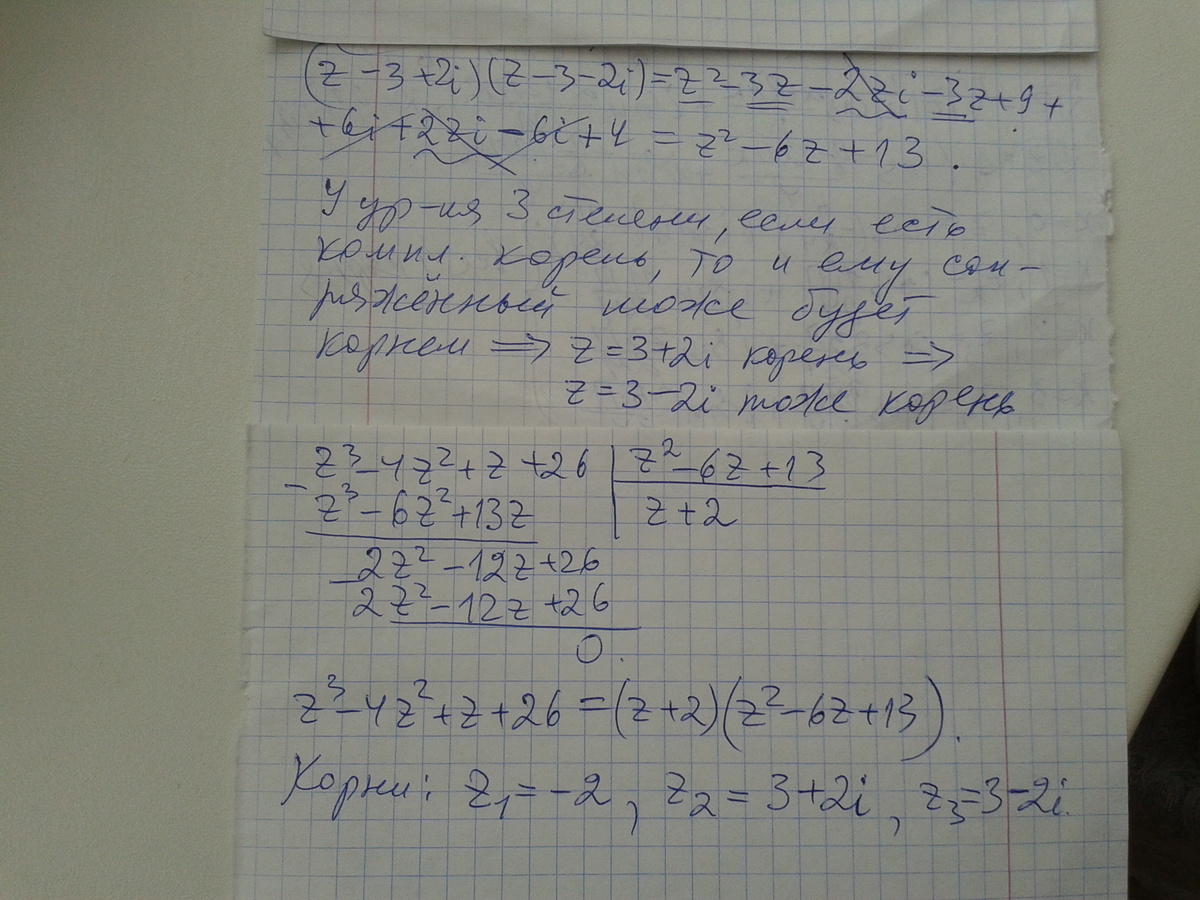 (z-3+2i)(z-3-2i)=z²-3z-2zi-3z+9+
+6i+2zi-6i+4=z²-6z+13.
У ур-ия 3 степени, если есть
компл. корень, то и ему соп-
ряжённый тоже будет
корнем ⇒ z=3+2i корень ⇒
z=3-2i тоже корень
z³-4z²+z+26 | z²-6z+13
- z³-6z²+13z | z+2
- 2z²-12z+26
2z²-12z+26
0.
z³-4z²+z+26=(z+2)(z²-6z+13).
Корни: z₁=-2, z₂=3+2i, z₃=3-2i.